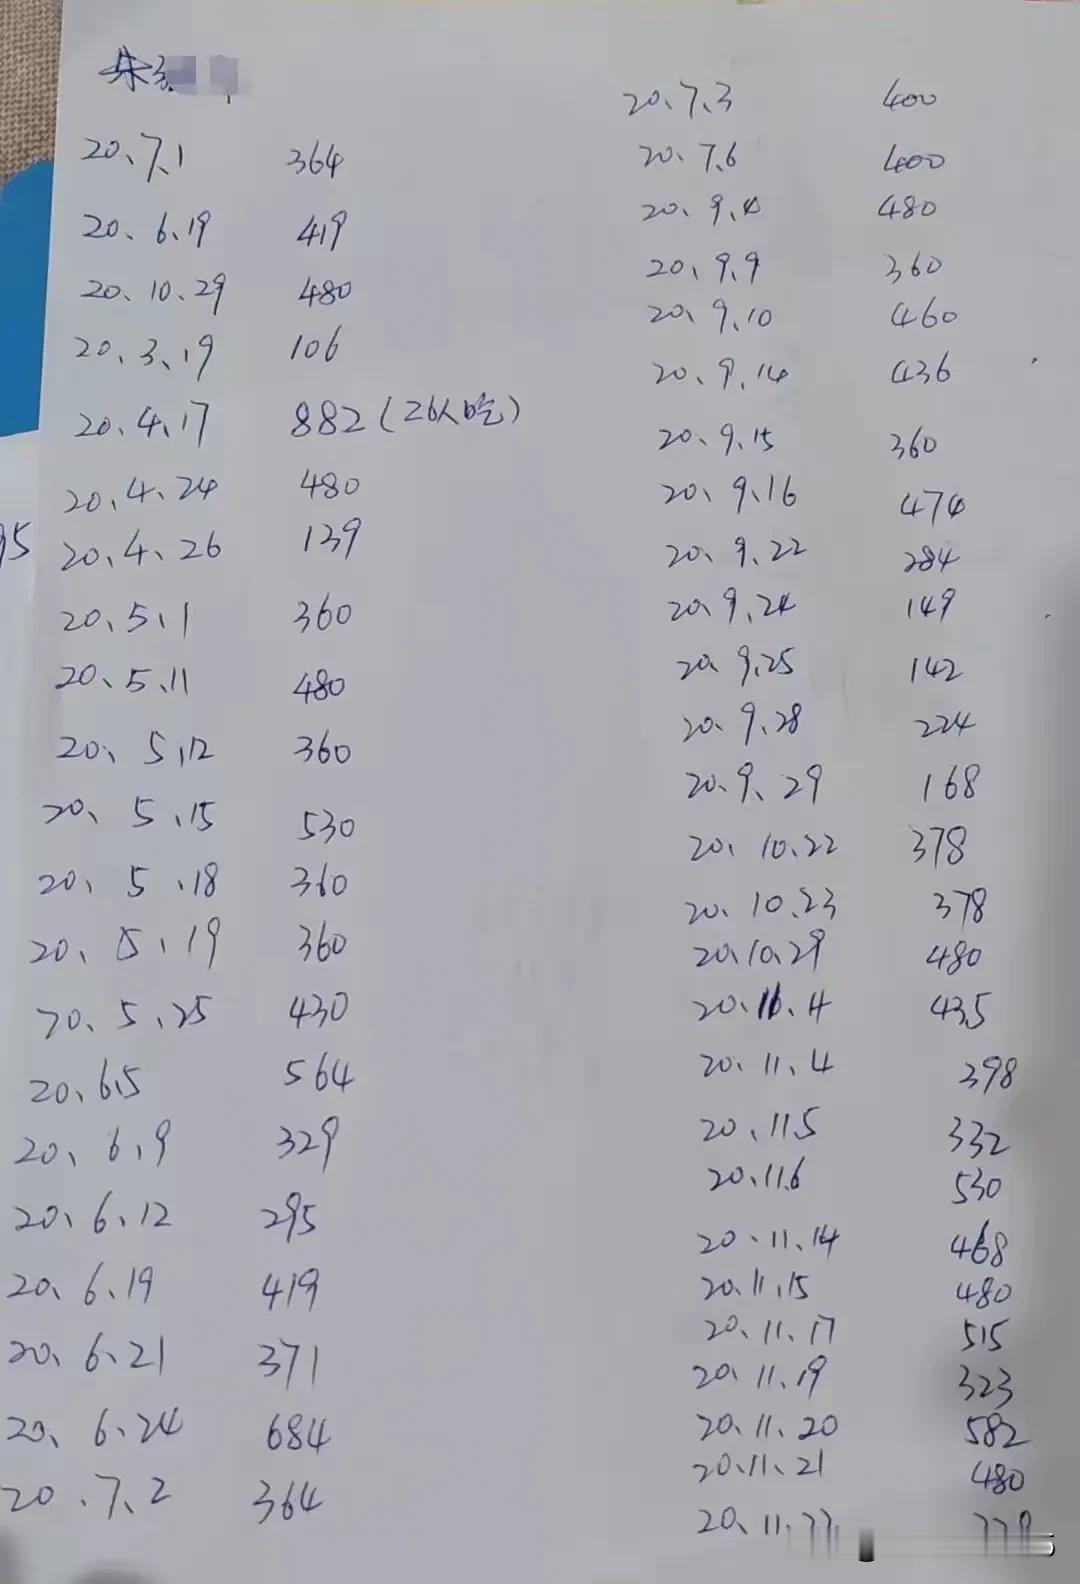 朱
20、7、1 364
20、6、19 419
20、10、29 480
20、3、19 106
20、4、17 882(26人吃)
20、4、24 480
20、4、26 139
20、5、1 360
20、5、11 480
20、5、12 360
20、5、15 530
20、5、18 360
20、5、19 360
20、5、25 430
20、6、5 564
20、6、9 329
20、6、12 295
20、6、19 419
20、6、21 371
20、6、24 684
20、7、2 364
95
20、7、3 400
20、7、6 400
20、9、4 480
20、9、9 360
20、9、10 460
20、9、14 436
20、9、15 360
20、9、16 474
20、9、22 284
20、9、24 149
20、9、25 142
20、9、28 224
20、9、29 168
20、10、22 378
20、10、23 378
20、10、29 480
20、11、4 435
20、11、4 398
20、11、5 332
20、11、6 530
20、11、14 468
20、11、15 480
20、11、17 515
20、11、19 323
20、11、20 582
20、11、21 480
20、11、